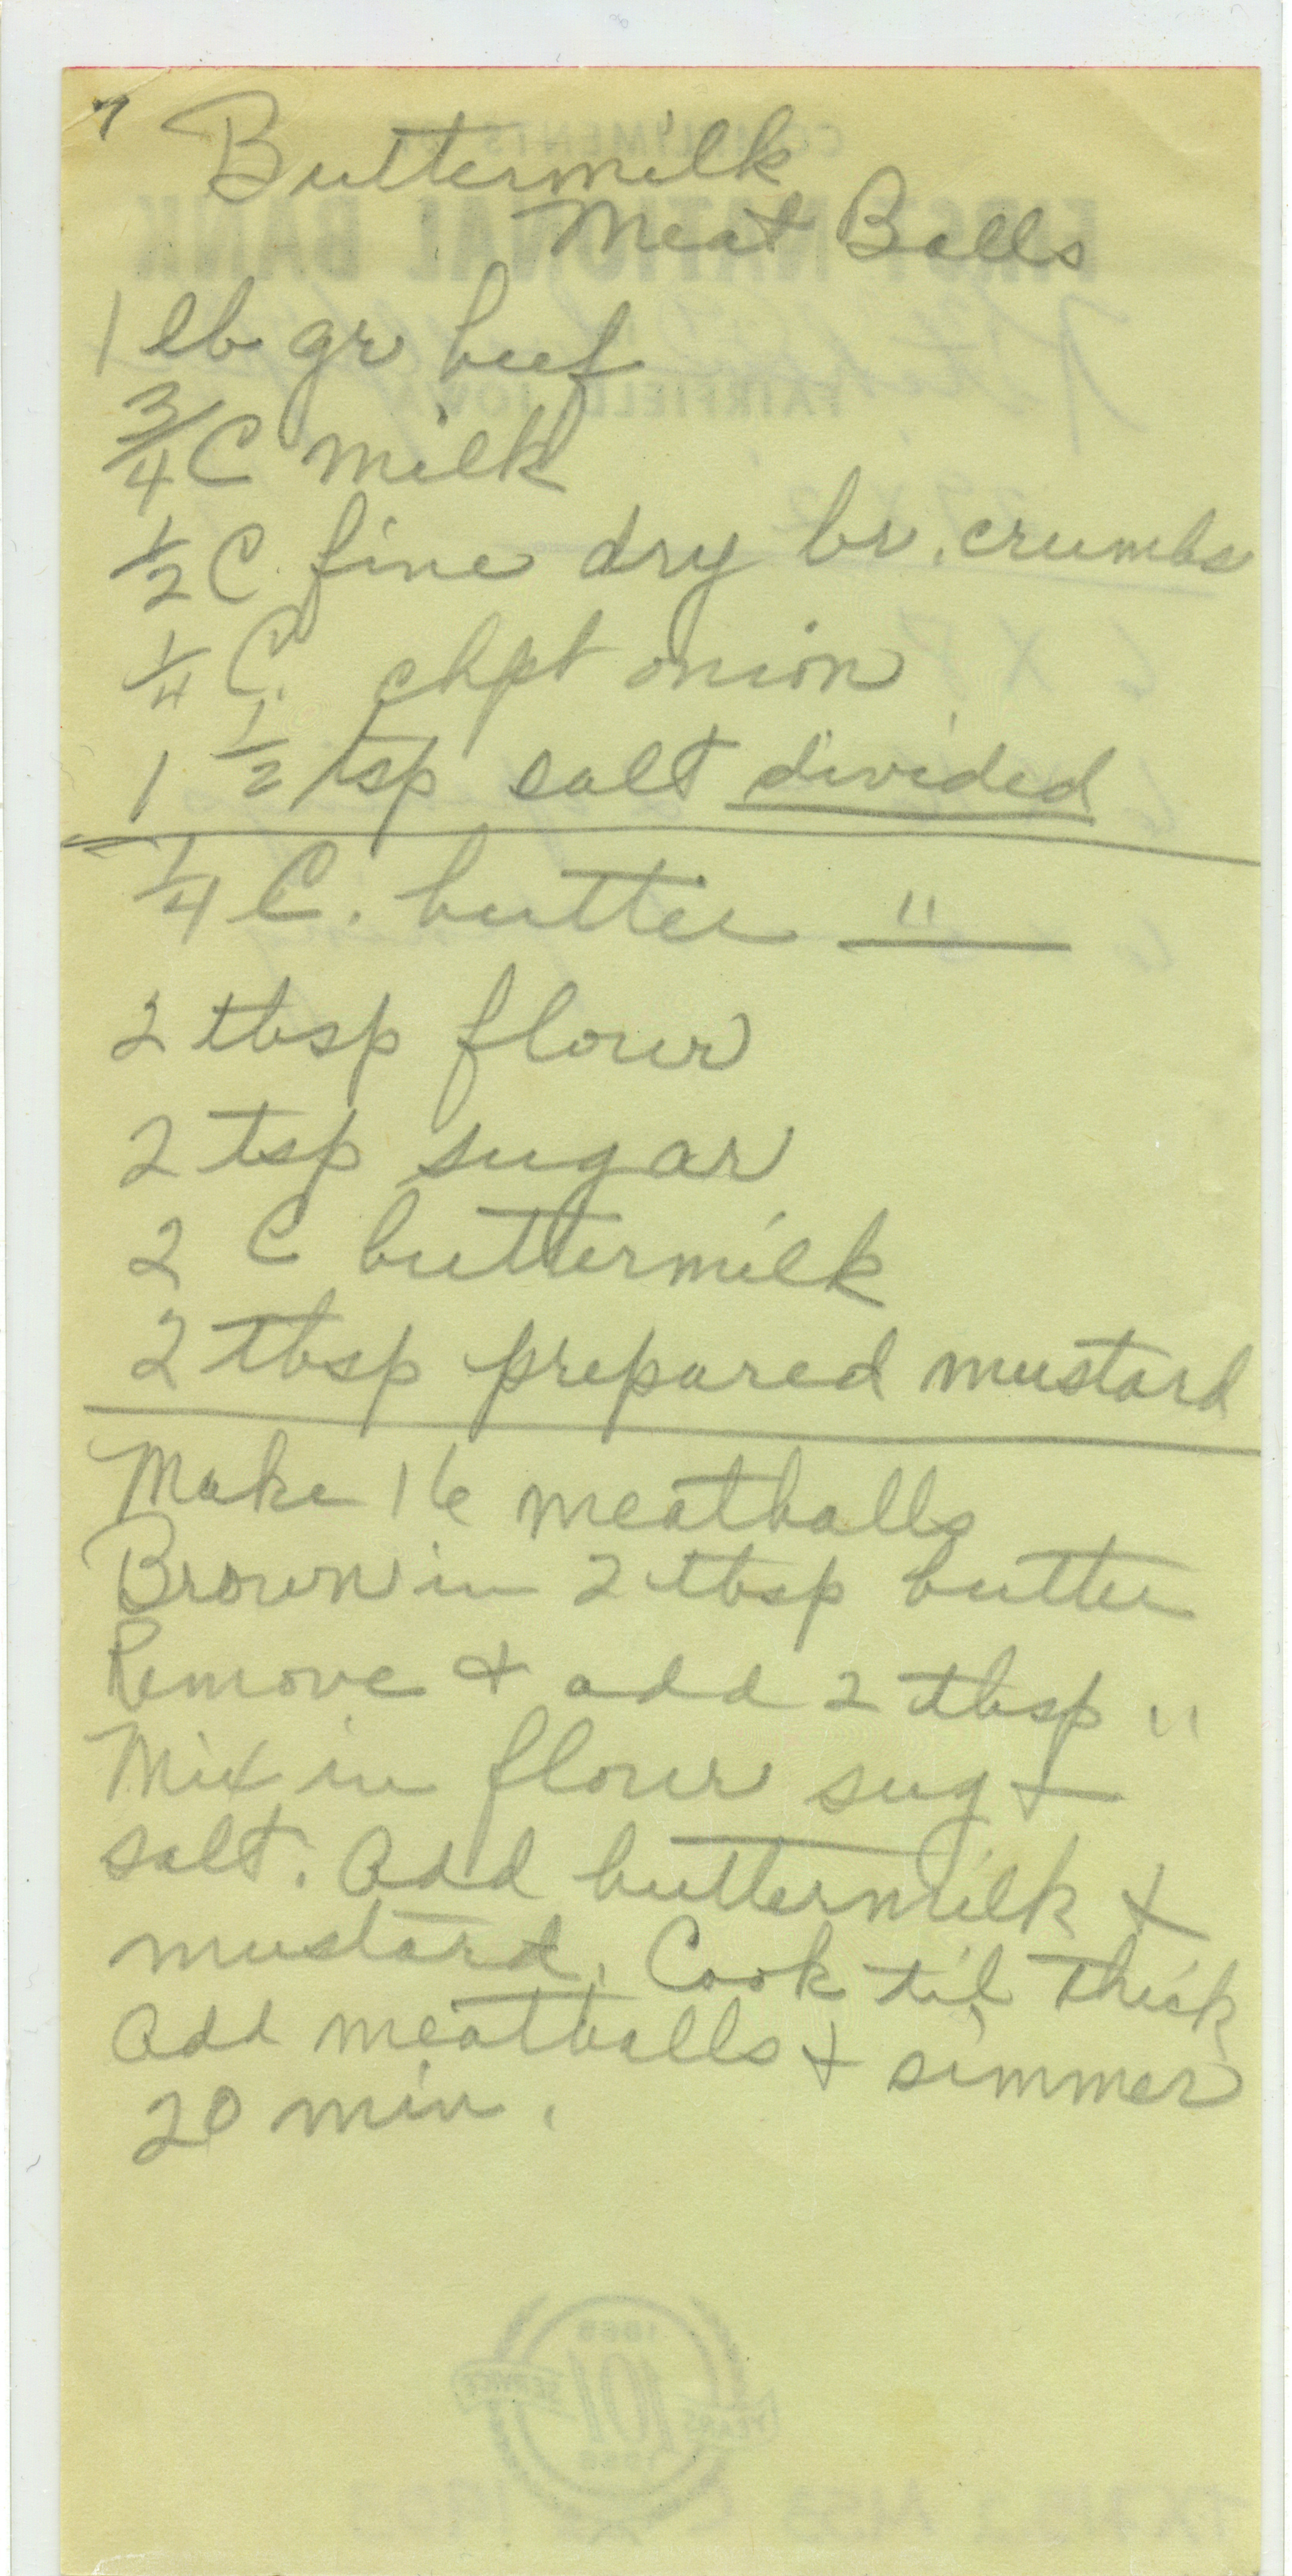 Buttermilk
Meat Balls
1 lb gr beef
3/4 C milk
1/2 C. fine dry br. crumbs
1/4 C. chpt onion
1 1/2 tsp salt divided
1/4 C. butter "
2 tbsp flour
2 tsp sugar
2 C buttermilk
2 tbsp prepared mustard
Make 16 meatballs
Brown in 2 tbsp butter
Remove + add 2 tbsp "
Mix in flour sug +
salt. Add buttermilk +
mustard. Cook til thick
Add meatballs + simmer
20 min.
COMPLIMENTS
FIRST NATIONAL BANK
FAIRFIELD, IOWA
101
YEARS SERVICE